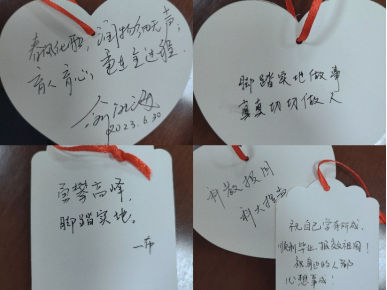 春风化雨，润物细无声，
育人育心，重在全过程。
2023.6.30
脚踏实地做事
真真切切做人
勇攀高峰，
脚踏实地。
科教报国
祝自己学有所成，
顺利毕业，报效祖国！
祝身边的人都
心想事成！